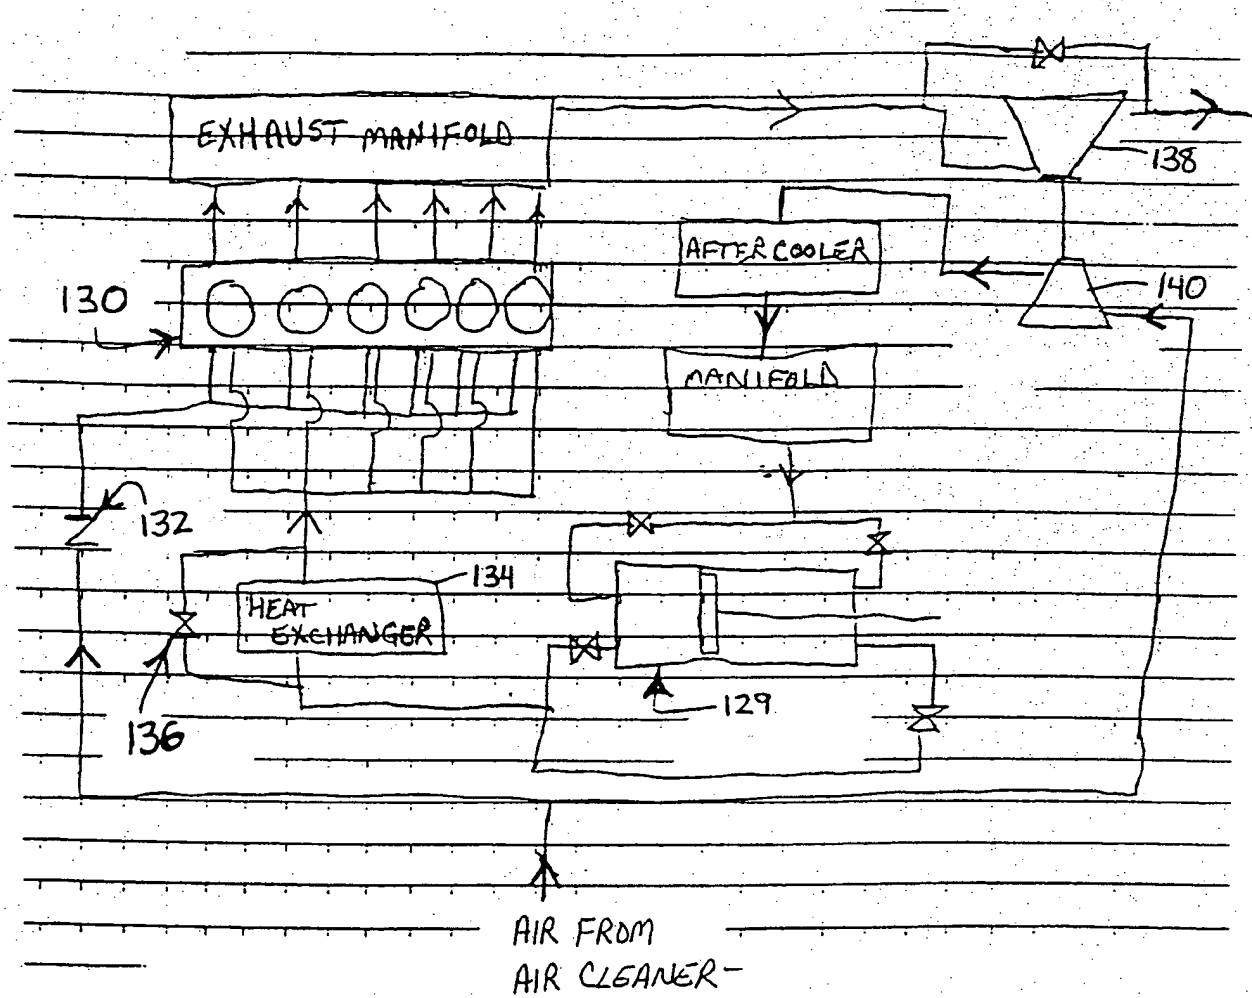 EXHAUST MANIFOLD
138
AFTERCOOLER
140
130
MANIFOLD
132
134
HEAT
EXCHANGER
129
136
AIR FROM
AIR CLEANER-